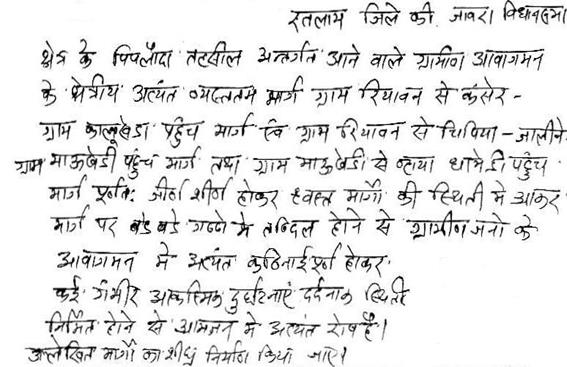 रतलाम जिले की जावरा विधानसभा
क्षेत्र के पिपलौदा तहसील अन्तर्गत आने वाले ग्रामीण आवागमन
के क्षेत्रीय अत्यंत व्यस्ततम मार्ग ग्राम रियावन से कंसेर -
ग्राम कालूखेडा पहुंच मार्ग एवं ग्राम रियावन से चिपिया - जालीने
ग्राम माऊखेडी पहुंच मार्ग तथा ग्राम माऊखेडी से व्हाया धामेडी पहुंच
मार्ग पूर्णतः जीर्ण शीर्ण होकर ध्वस्त मार्गो की स्थिती मे आकर
मार्ग पर बडे बडे गड्डो मे तब्दिल होने से ग्रामीण जनो के
आवागमन मे अत्यंत कठिनाई पूर्ण होकर
कई गंभीर आकस्मिक दुर्घटनाएं दर्दनाक स्थिती
निर्मित होने से आमजन मे अत्यंत रोष है।
उल्लेखित मार्गो का शीघ्र निर्माण किया जाए।